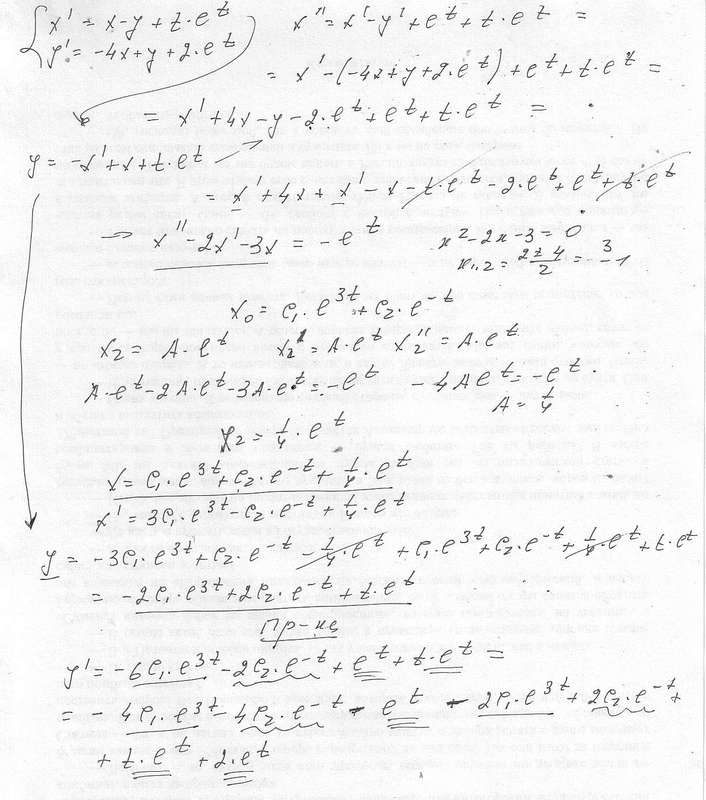 { x' = x-y+t·e^t
y' = -4x+y+2·e^t
x'' = x'-y'+e^t+t·e^t =
= x'-(-4x+y+2·e^t)+e^t+t·e^t =
= x'+4x-y-2·e^t+e^t+t·e^t =
y = -x'+x+t·e^t
= x'+4x+x'-x-t·e^t-2·e^t+e^t+t·e^t
→ x''-2x'-3x = -e^t
x²-2x-3=0
x₁,₂ = (2±4)/2 = 3 -1
x₀ = C₁·e^3t+C₂·e^-t
x₂ = A·e^t x₂' = A·e^t x₂'' = A·e^t
A·e^t-2A·e^t-3A·e^t = -e^t -4Ae^t = -e^t.
A = 1/4
x₂ = 1/4·e^t
x = C₁·e^3t+C₂·e^-t+1/4·e^t
x' = 3C₁·e^3t-C₂·e^-t+1/4·e^t
y = -3C₁·e^3t+C₂·e^-t-1/4·e^t+C₁·e^3t+C₂·e^-t+1/4·e^t+t·e^t
= -2C₁·e^3t+2C₂·e^-t+t·e^t
Пр-ка
y' = -6C₁·e^3t-2C₂·e^-t+e^t+t·e^t =
= -4C₁·e^3t-4C₂·e^-t-e^t-2C₁·e^3t+2C₂·e^-t+
+t·e^t+2·e^t